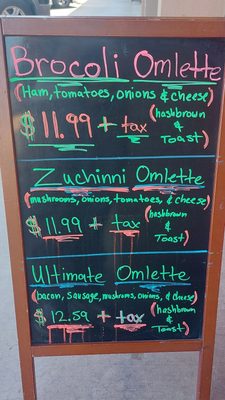 Brocoli Omlette
(Ham, tomatoes, onions & cheese)
$11.99 + tax (hashbrown & Toast)
Zuchinni Omlette
(mushrooms, onions, tomatoes, & cheese)
$11.99 + tax (hashbrown & Toast)
Ultimate Omlette
(bacon, Sausage, mushroms, onions, & cheese)
$12.59 + tax (hashbrown & Toast)